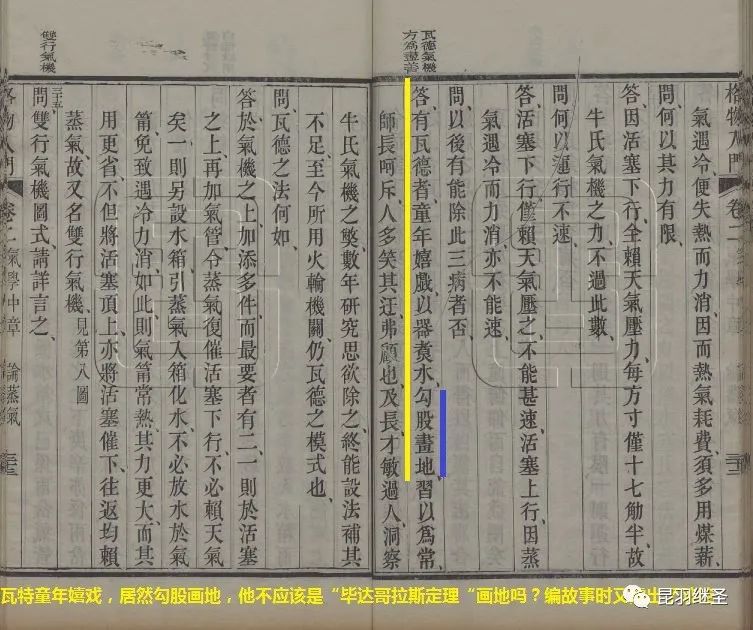 格物入門 卷二
氣遇冷便失熱而力消因而熱氣耗費須多用煤薪
問何以其力有限
答因活塞下行全賴天氣壓力每方寸僅十七觔半故
牛氏氣機之力不過此數
問何以運行不速
答活塞下行僅賴天氣壓之不能甚速活塞上行因蒸
氣遇冷而力消亦不能速
問以後有能除此三病者否
瓦德氣機
方為盡善
答有瓦德者童年嬉戲以器煮水勾股畫地習以爲常
師長呵斥人多笑其迂弗顧也及長才敏過人洞察
牛氏氣機之獘數年研究思欲除之終能設法補其
不足至今所用火輪機關仍瓦德之模式也
問瓦德之法何如
答於氣機之上加添多件而最要者有二一則於活塞
之上再加氣管令蒸氣復催活塞下行不必賴天氣
矣一則另設水箱引蒸氣入箱化水不必放水於氣
筩免致遇冷力消如此則氣筩常熱其力更大而其
用更省不但將活塞頂上亦將活塞催下往返均賴
蒸氣故又名雙行氣機 見第八圖
雙行氣機
三十五
問雙行氣機圖式請詳言之
格物入門 卷二 氣學中章 論蒸氣
瓦特童年嬉戏，居然勾股画地，他不应该是“毕达哥拉斯定理“画地吗？编故事时又
昆羽继圣